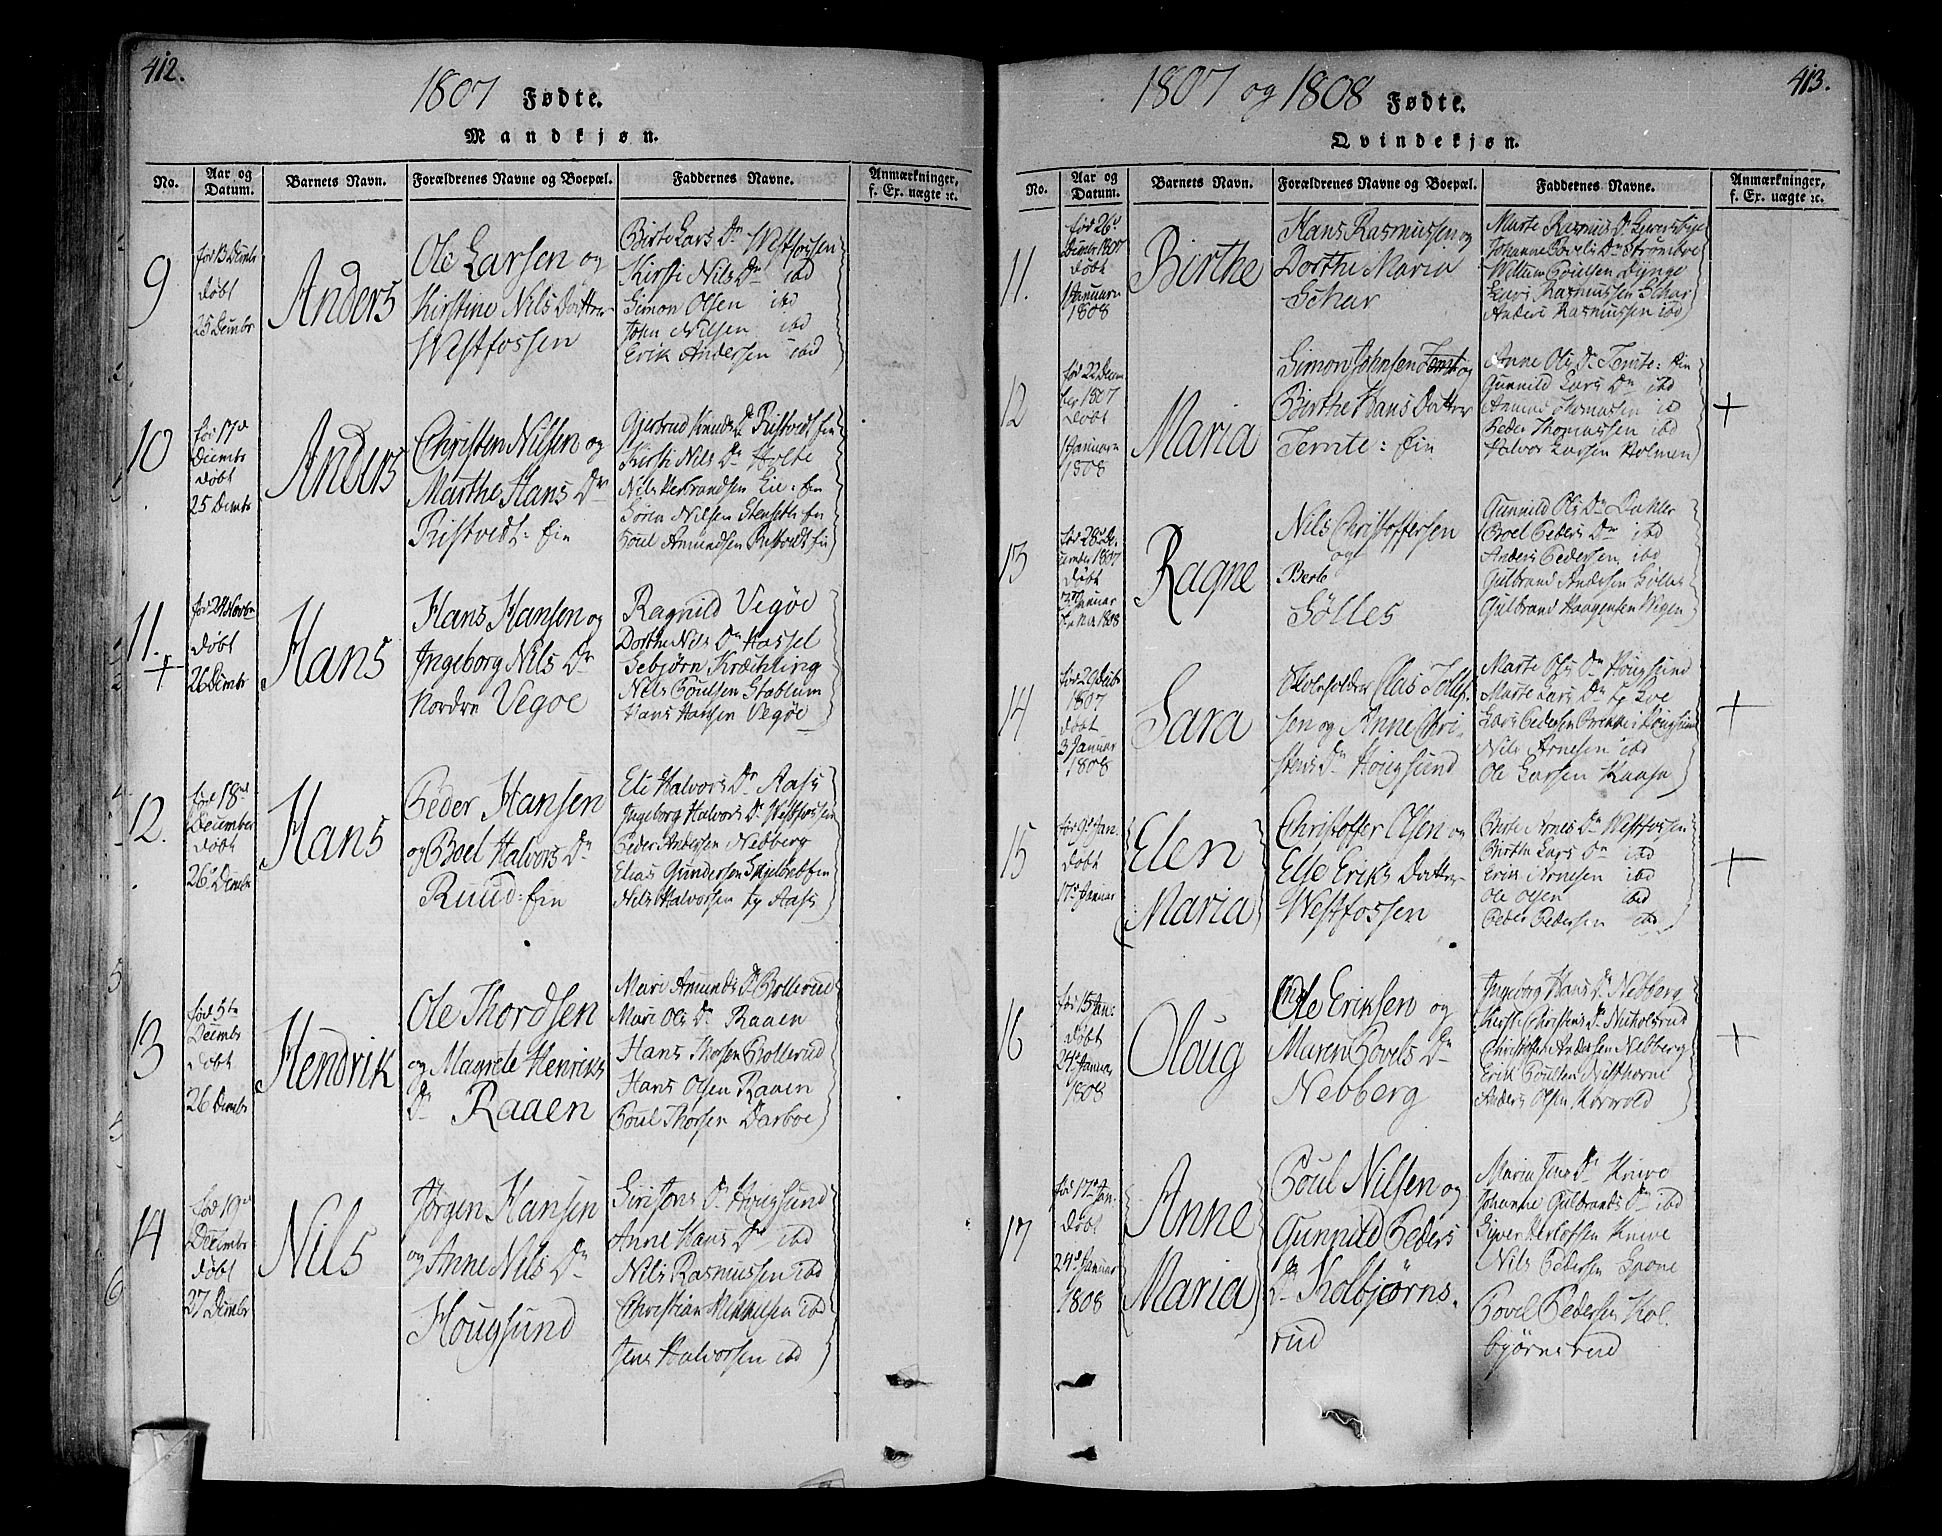 412.
1807 Fødte.
Mandkjøn.
No.
Aar og Datum.
Barnets Navn.
Forældrenes Navne og Boepæl.
Faddernes Navne.
Anmærkninger, f. Ex. uægte ꝛc.
9
født
døbt
Anders
Ole Larsen og
Kirstine Nils Datter
Westfossen
Birte Lars Dr Westfossen
Kirsti Nils Dr ibd
Simon Olsen ibd
John Nilsen ibd
Erik Andersen ibd
10
fød 17d
døbt
Anders
Christen Nilsen og
Marthe Hans Dr
Ristvedt: Ein
Gjertrud Knuds D Ristvedt Ein
Kirsti Nils Dr Holte
Nils Herbrandsen Lie: Ein
Søren Nilsen Stenseth: Ein
Poul Amundsen Ristvedt Ein
11.
døbt
Hans
Hans Hansen og
Ingeborg Nils Dr
Nordre Vegoe
Ragnild Vegøe
Dorthe Nils Dr Hassel
Gebjørn Kræhling
Nils Poulsen Stablum
Hans Hansen Vegøe
12.
fød 18d
December
døbt
Hans
Peder Hansen
og Boel Halvors Dr
Ruud: Ein
Eli Halvors Dr Aass
Ingeborg Halvors Dr Westfossen
Peder Andersen Nedberg
Elias Gundersen
Nils Halvorsen Aass
13
fød 5te
døbt
Hendrik
Ole Thordsen
og Magrete Henriks
Dr Raaen
Mari Amunds Dr Bollerud
Mari Ols Dr Raaen
Hans Thorsen Bollerud
Hans Olsen Raaen
Poul Thorsen Darboe
14
fød 19d
døbt
Nils
Jørgen Hansen
og Anne Nils Dr
Hougsund
Siri Jens Dr Hougsund
Anne Hans Dr ibd
Nils Rasmussen ibd
Christian Mikkelsen ibd
Jens Halvorsen ibd
413.
1807 og 1808 Fødte.
Qvindekjøn.
No.
Aar og Datum.
Barnets Navn.
Forældrenes Navne og Boepæl.
Faddernes Navne.
Anmærkninger, f. Ex. uægte ꝛc.
11.
fød 26d
døbt
1 Januar
1808
Birthe
Hans Rasmussen og
Dorthe Maria
Schar
Marte Rasmus Dr
Johanne Povels Dr Strømboe
Willum Poulsen
Lars Rasmussen Schar
Anders Rasmussen ibd
12
1807
døbt
1 Januar
1808
Maria
Simon Johnsen og
Birthe Hans Datter
Temte: Ein
Anne Ols Dr Temte: Ein
Gunnild Lars Dr ibd
Amund Thomassen ibd
Peder Thomassen ibd
Halvor Larsen Holmen
+
13
1807
døbt
1808
Ragne
Nils Christoffersen
og
Berte
Sølles
Gunnild Ols Dr Dahler
Boel Peders Dr ibd
Anders Pedersen ibd
Gulbrand Andersen Sølles
Gulbrand Haagensen Wigen
14
1807
døbt
3 Januar
1808
Sara
Skoleholder Clas
sen og Anne Chri-
stens Dr Hougsund
Marte Ols Dr Hougsund
Marte Lars Dr
Lars Pedersen
Nils Arnesen ibd
Ole Larsen Kaasa
+
15
fød 9d Jan.
døbt
17d Januar
Elen
Maria
Christoffer Olsen og
Else Eriks Datter
Westfossen
Berte Arnes Dr Westfossen
Birthe Lars Dr ibd
Erik Arnesen ibd
Ole Olsen ibd
Peder Pedersen ibd
+
16
fød 15 Jan:
døbt
24d Januar
1808
Oloug
Ole Eriksen og
Maren Povels Dr
Nebberg
Ingeborg Hans Dr Nebberg
Kirsti Christens Dr
Christoffer Andersen Nebberg
Erik Poulsen
Anders Olsen
+
17
fød 17d Jan.
døbt
24d Januar
1808
Anne
Maria
Poul Nilsen og
Gunnild Peders
Dr Kolbjørns-
rud
Maria Jens Dr Knive
Johanne Gulbrands Dr ibd
Syver Herlofsen Knive
Nils Pedersen
Povel Pedersen Kol-
bjørnsrud